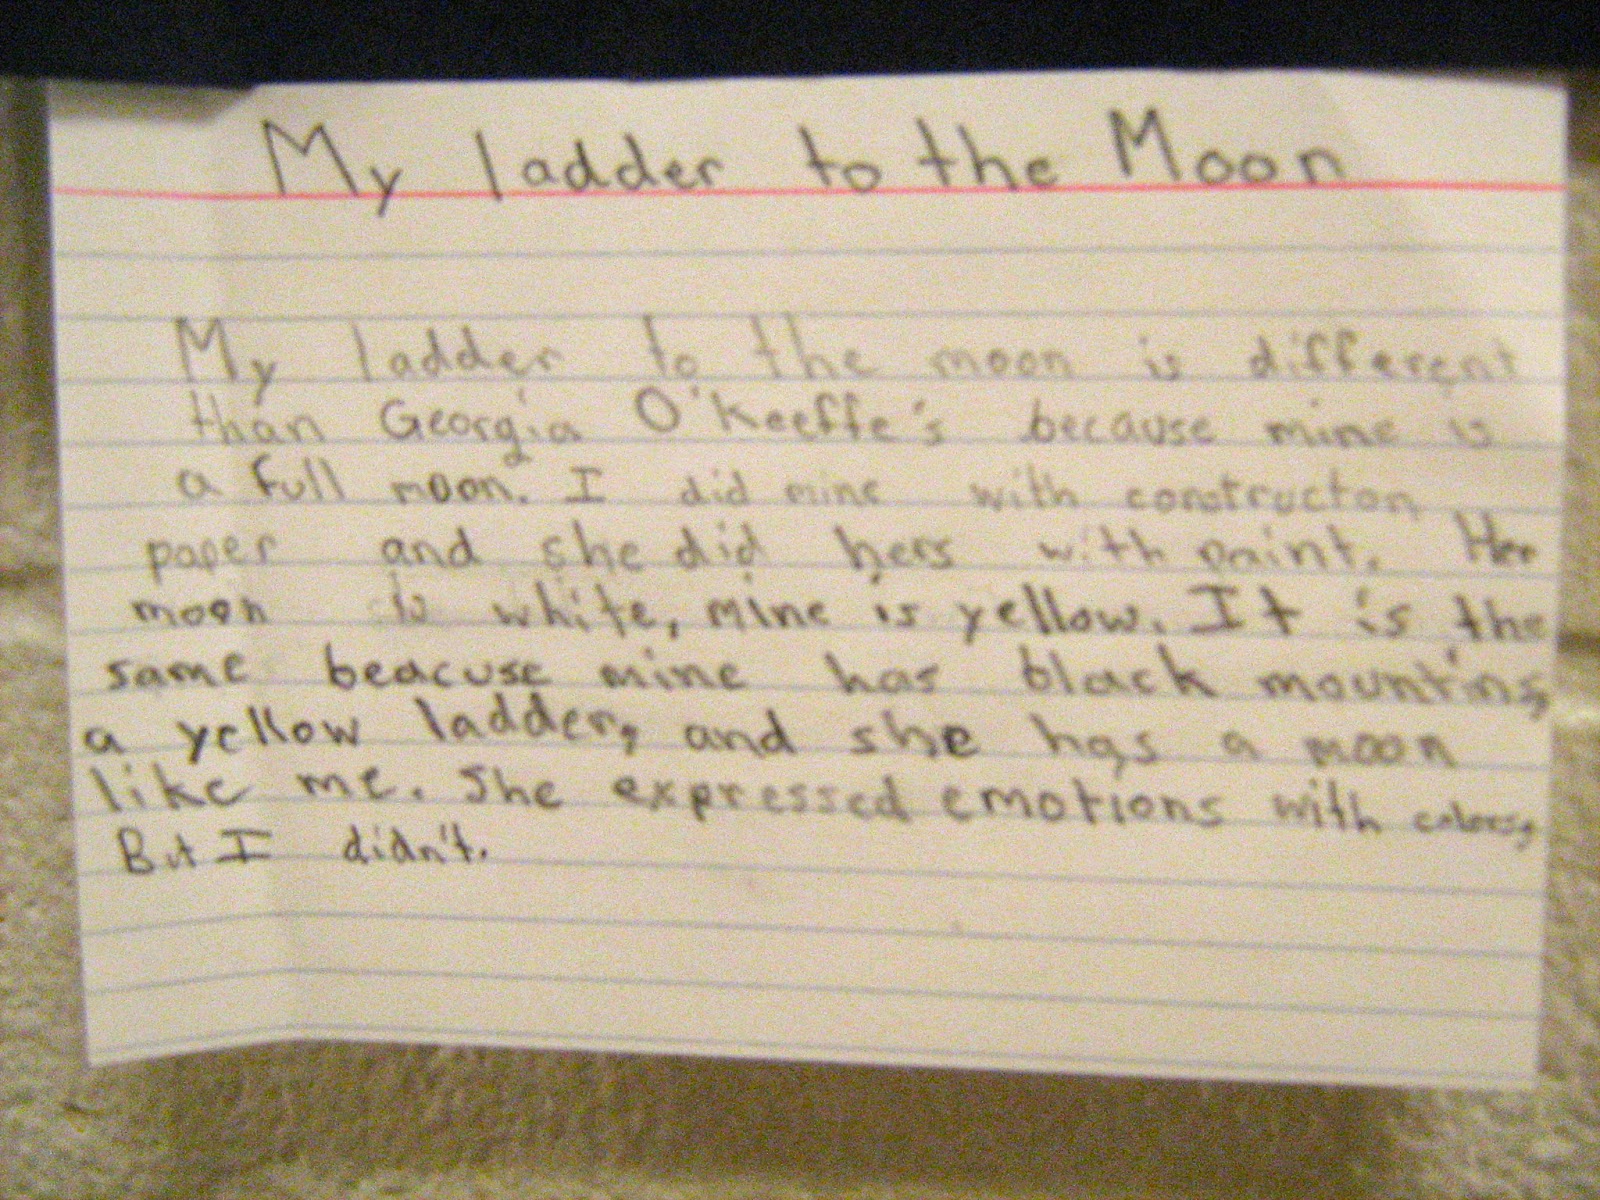 My ladder to the Moon
My ladder to the moon is different
than Georgia O'Keeffe's because mine is
a full moon. I did mine with constructon
paper and she did hers with paint. Her
moon is white, mine is yellow. It is the
same beacuse mine has black mountins,
a yellow ladder, and she has a moon
like me. She expressed emotions with colors,
But I didn't.